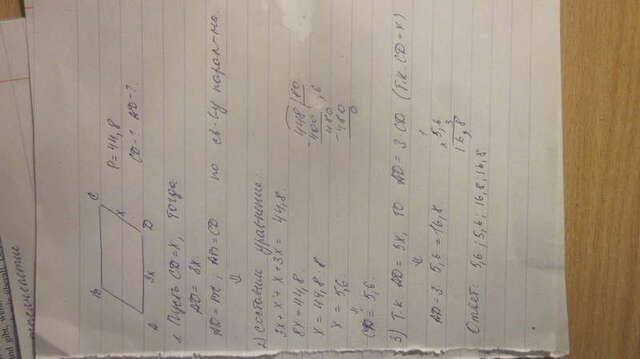 B C
A D
3x
x
P=44,8
CD-? AD-?
1. Пусть CD=x, тогда
AD=3x.
AD=BC, AB=CD по св-ву парал-ма.
⇓
2) составим уравнение:
3x+x+x+3x=44,8
8x=44,8
x=44,8:8
x=5,6
⇓
CD=5,6
3) Т.к AD=3x, то AD=3 CD (т.к. CD=x)
⇓
AD=3·5,6=16,8
5,6
× 3
16,8
Ответ: 5,6; 5,6; 16,8; 16,8